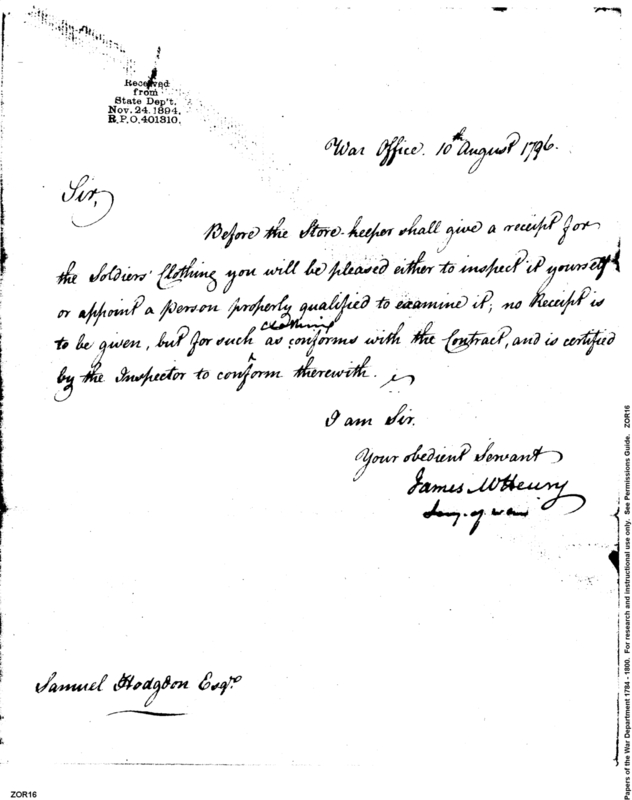 Received
from
State Dep't.
Nov. 24. 1894.
R.P.O. 401310.
War Office. 10th August 1796.
Sir,
Before the Store-keeper shall give a receipt for
the Soldiers' Clothing you will be pleased either to inspect it yourself
or appoint a person properly qualified to examine it; no Receipt is
to be given, but for such clothing as conforms with the Contract, and is certified
by the Inspector to conform therewith.
I am Sir.
Your obedient Servant
James McHenry
Secy. of war
Samuel Hodgdon Esqr.
ZOR16
Papers of the War Department 1784 - 1800. For research and instructional use only. See Permissions Guide. ZOR16